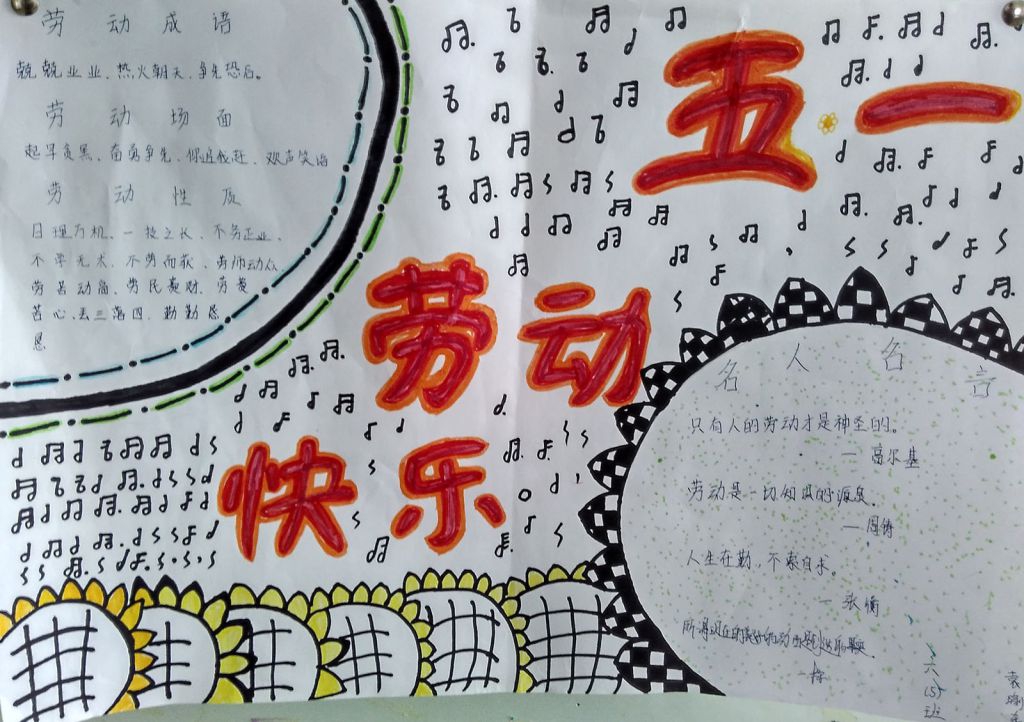 劳动成语
兢兢业业、热火朝天、争先恐后。
劳动场面
起早贪黑、奋勇争先、你追我赶、欢声笑语
劳动性质
日理万机、一技之长、不务正业、
不学无术、不劳而获、劳师动众
劳苦功高、劳民伤财、劳
苦心、丢三落四、勤勤恳
恳
五一
劳动
快乐
名人名言
只有人的劳动才是神圣的。
一 高尔基
劳动是一切知识的源泉
一 陶铸
人生在勤，不索何求。
一 张衡
六(5)班